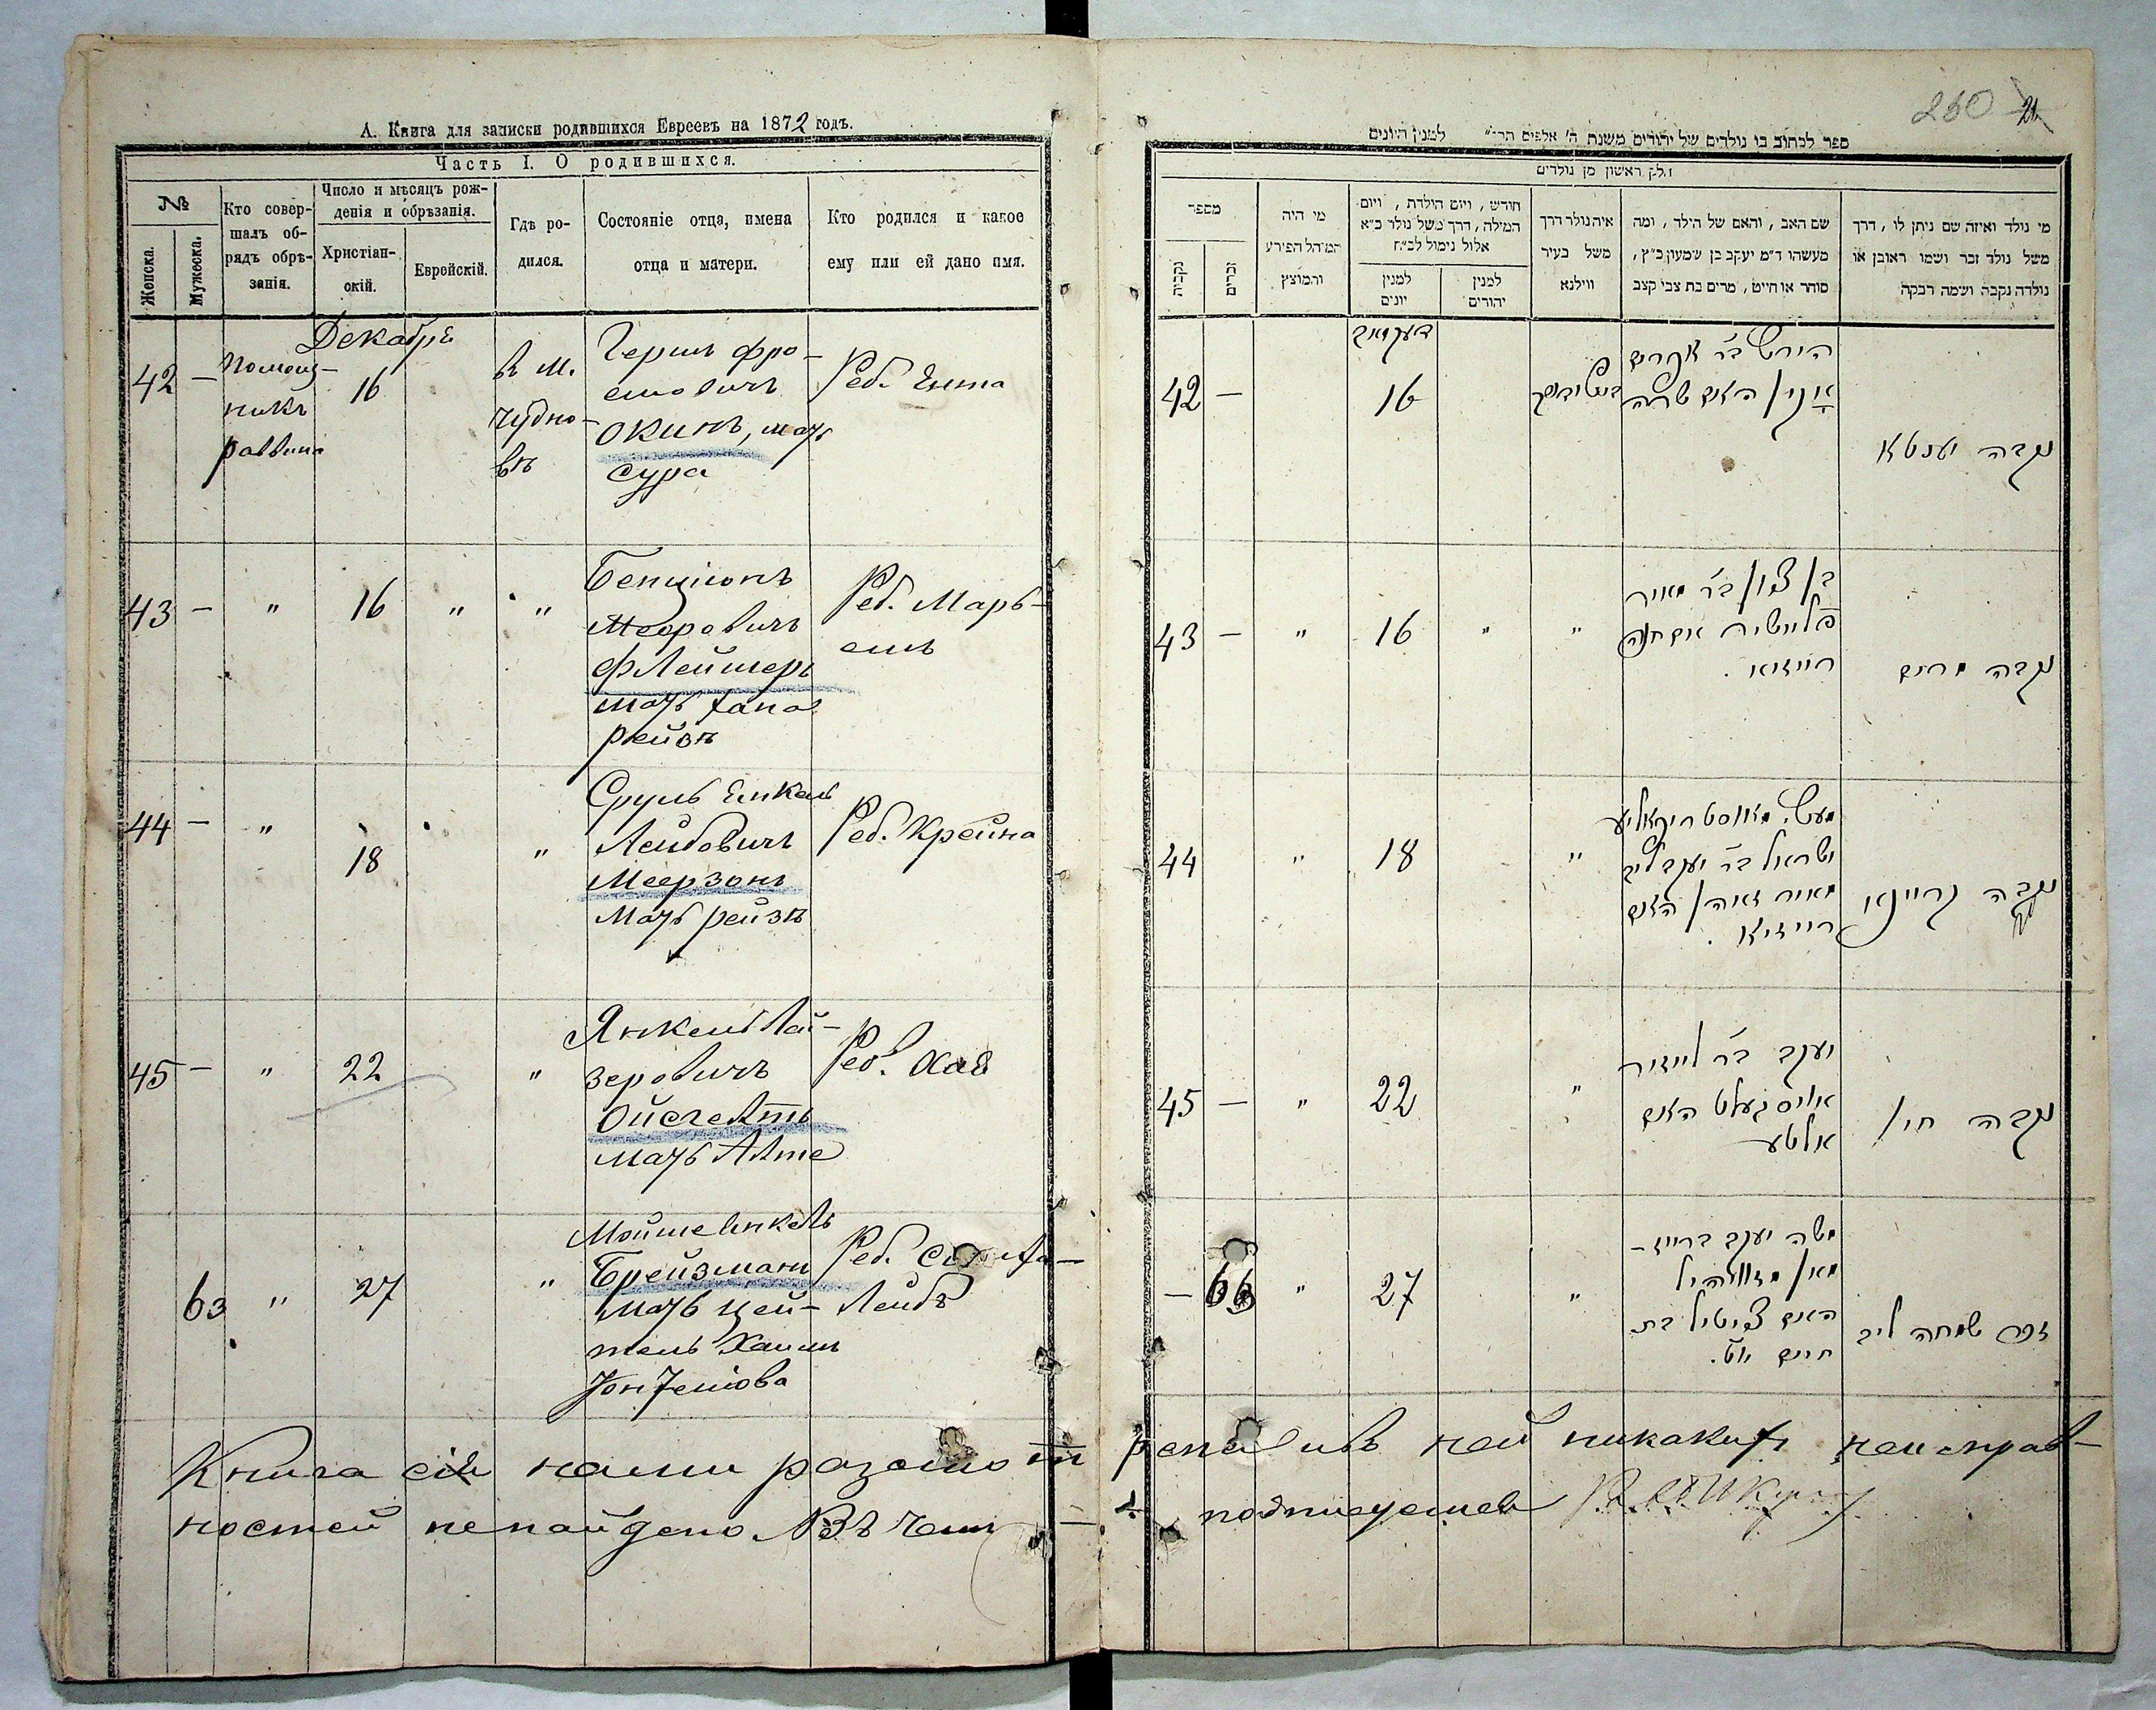 А. Книга для записки родившихся Евреевъ на 1872 годъ.
Часть I. О родившихся.
№
Женска.
Мужеска.
Кто совер-
шалъ об-
рядъ обрѣ-
занія.
Число и мѣсяцъ рож-
денія и обрѣзанія.
Христіан-
скій.
Еврейскій.
Гдѣ ро-
дился.
Состояніе отца, имена
отца и матери.
Кто родился и какое
ему или ей дано имя.
Декабря
42 —
Помощ-
никъ
раввина
16
в м.
Чудно-
вѣ
Гершъ Фро-
емовичъ
Окинъ, мать
Сура
Реб. Ента
43 — " 16 " "
Бенціонъ
Мееровичъ
Флейшеръ
мать Хана
Рейзя
Реб. Марь-
емъ
44 — " 18 "
Сруль Янкель
Лейбовичъ
Меерзонъ
мать Рейзя
Реб. Крейна
45 — " 22 "
Янкель Лей-
зеровичъ
Ойсгелтъ
мать Алте
Реб. Хая
63 " 27 "
Мойше Янкель
Брейзманъ
мать Цей-
тель Хаимъ
Реб.
Лейбъ
Книга сія нами разсмотрена и въ ней никакихъ неисправ-
ностей ненайдено Въ чемъ и подписуемся
260 21
ספר לכתוב בו נולדים של יהודים משנת ה' אלפים תר" למנין היונים
חלק ראשון מן נולדים
מספר
נקבות
זכרים
מי היה
המוהל הפורע
והמוצץ
חודש, ויום הילדת, ויום
המילה, דרך משל נולד כ"א
אלול נימול לכ"ח
למנין
יונים
למנין
יהודים
איה נולד דרך
משל בעיר
ווילנא
שם האב, והאם של הילד, ומה
מעשהו ד"מ יעקב בן שמעון כ"ץ,
סוחר או חייט, מרים בת צבי קצב
מי נולד ואיזה שם ניתן לו, דרך
משל נולד זכר ושמו ראובן או
נולדה נקבה ושמה רבקה
42 — 16
הירש ב"ר אפרים
נקבה יענטא
43 — " 16 " "
בן ציון ב"ר מאיר
פליישיר אם חנה
רייזיא.
נקבה מרים
44 " 18 "
ישראל ב"ר יעקב ליב
האם
רייזיא.
נקבה קריינא
45 — " 22 "
יעקב ב"ר לייזיר
אויסגעלט האם
אלטע
נקבה חי'
— 63 " 27 "
משה יעקב ברייז-
מאן
האם צייטיל בת
חיים
זכר שמחה ליב